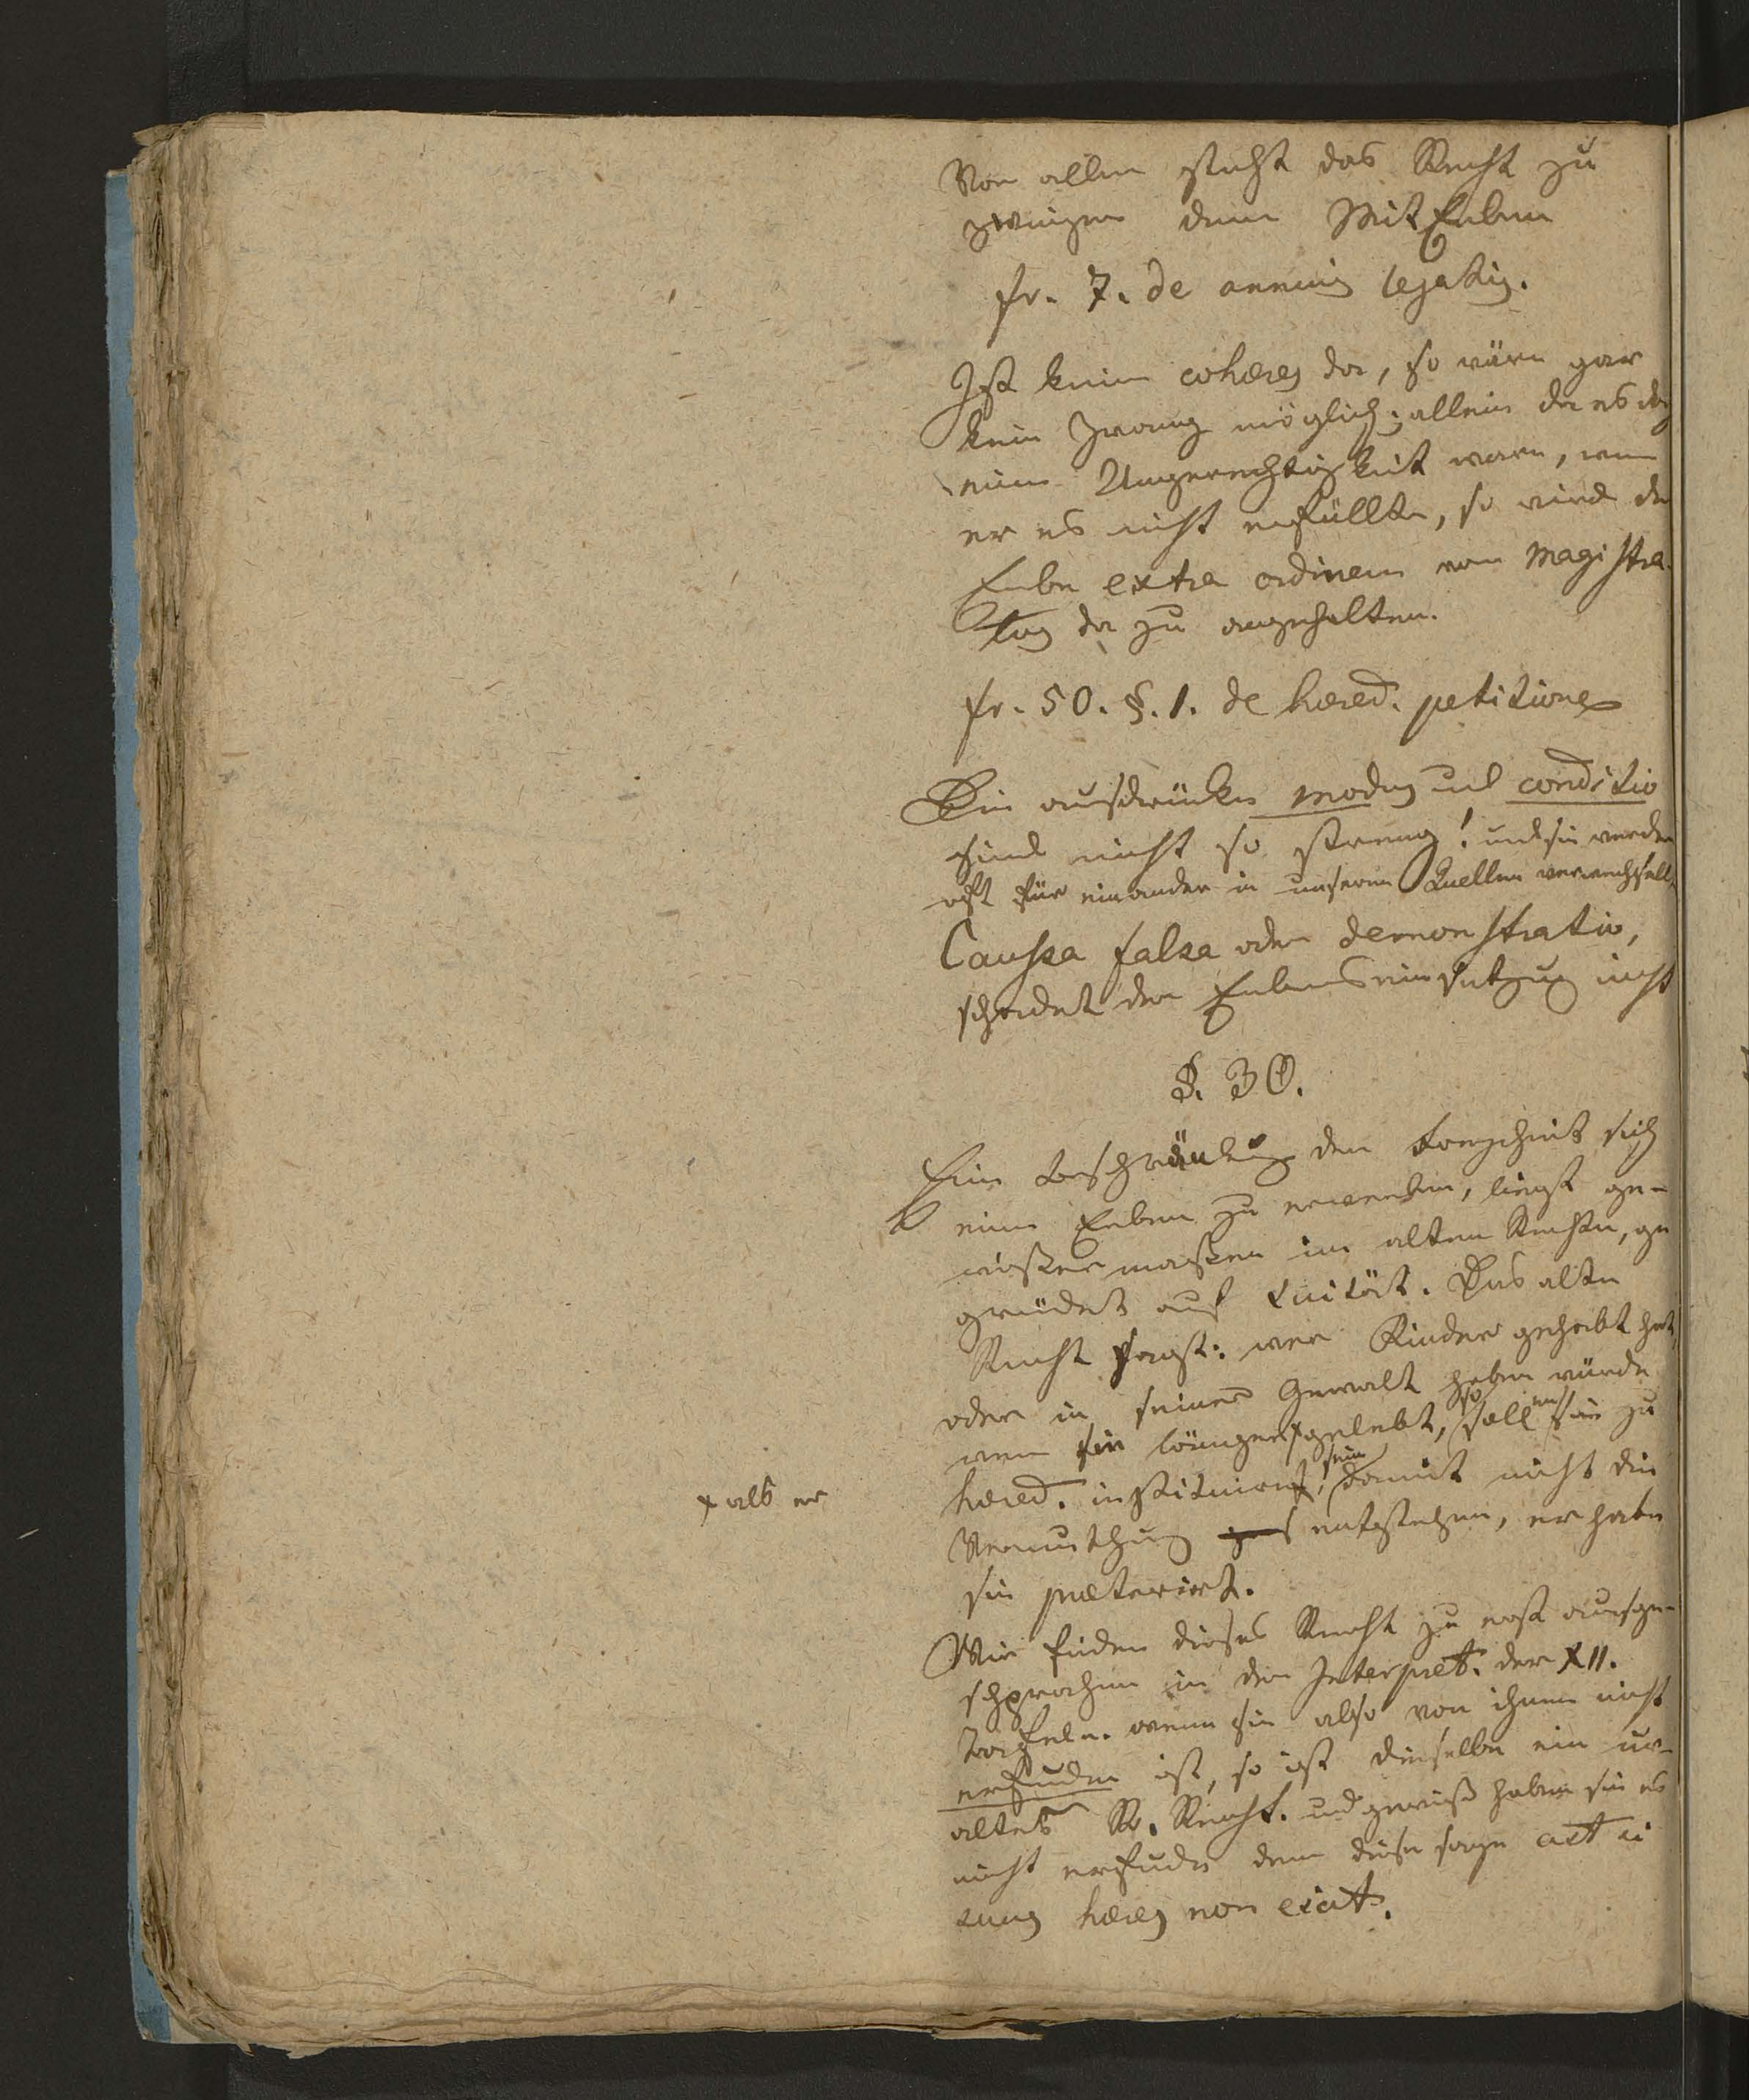 Vor allen steht das Recht zu
zwingen dem MitErben
fr. 7. de annuis legatis.
Ist kein cohæres da, so wäre gar
kein Zwang möglich; allein da es doch
eine Ungerechtigkeit wäre, wenn
er es nicht erfüllte, so wird der
Erbe extra ordinem vom Magistra-
tus da zu angehalten.
fr. 50. §. 1. de hæred. petitione
Die ausdrücke modus und conditio
sind nicht so streng! und sie werden
oft für einander in unseren Quellen verwechselt
Caussa falsa oder demonstratio,
schadet der Erbenseinsetzung nicht
§. 30.
Eine beschränkung der Freyheit sich
einen Erben zu erwerben, liegt ge-
wißer maßen im alten Rechte, ge
gründet auf Suität. Das alte
Recht sagt: wer Kinder gehabt hat
oder in seiner Gewalt haben würde
wenn sie länger × gelebt, so soll er sie zu
× alß er
hæred. instituirt, sein damit nicht die
Vermuthung entstehen, er habe
sie præterirt.
Wir finden dieses Recht zu erst ausge-
schprochen in der Interpret. der XII.
Tafeln. wenn sie also von ihnen nicht
erfunden ist, so ist dieselbe ein ur-
altes R. Recht. und gewiß haben sie es
nicht erfunden denn diese sage ast ei
suus hæres non erit.